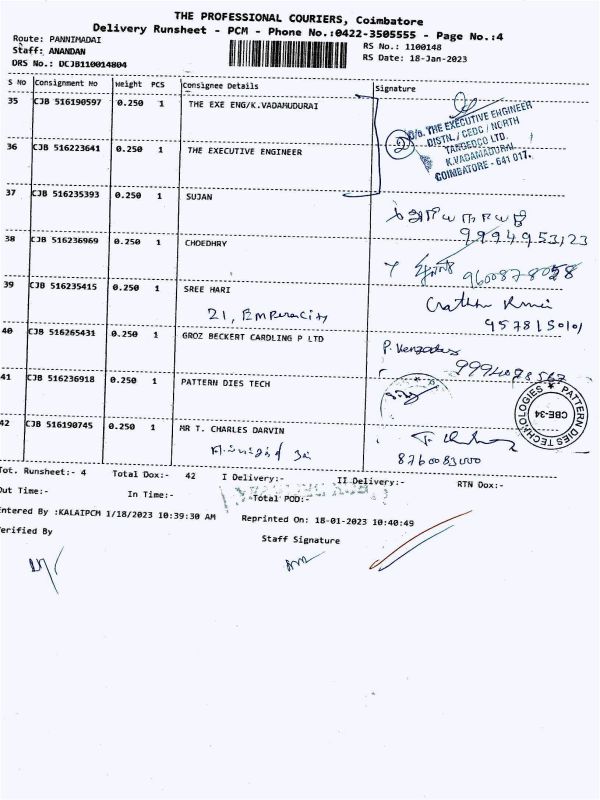 THE PROFESSIONAL COURIERS, Coimbatore
Delivery Runsheet - PCM - Phone No.:0422-3505555 - Page No.:4
Route: PANNIMADAI
RS No.: 1100148
Staff: ANANDAN
RS Date: 18-Jan-2023
DRS No.: DCJB110014804
S No Consignment No Weight PCS Consignee Details Signature
35 CJB 516190597 0.250 1 THE EXE ENG/K.VADAMUDURAI
36 CJB 516223641 0.250 1 THE EXECUTIVE ENGINEER
2
O/o. THE EXECUTIVE ENGINEER
DISTN./ CEDC / NORTH
TANGEDCO LTD.
K.VADAMADURAI,
COIMBATORE - 641 017.
37 CJB 516235393 0.250 1 SUJAN
9994953123
38 CJB 516236969 0.250 1 CHOEDHRY
9600878058
39 CJB 516235415 0.250 1 SREE HARI
21, Emperacity
9578150101
40 CJB 516265431 0.250 1 GROZ BECKERT CARDLING P LTD
P.
9994078567
41 CJB 516236918 0.250 1 PATTERN DIES TECH
PATTERN DIES TECHNOLOGIES
CBE-34
42 CJB 516190745 0.250 1 MR T. CHARLES DARVIN
8760083000
Tot. Runsheet:- 4 Total Dox:- 42 I Delivery:- II Delivery:- RTN Dox:-
Out Time:- In Time:- Total POD:-
Entered By :KALAIPCM 1/18/2023 10:39:30 AM Reprinted On: 18-01-2023 10:40:49
Verified By Staff Signature